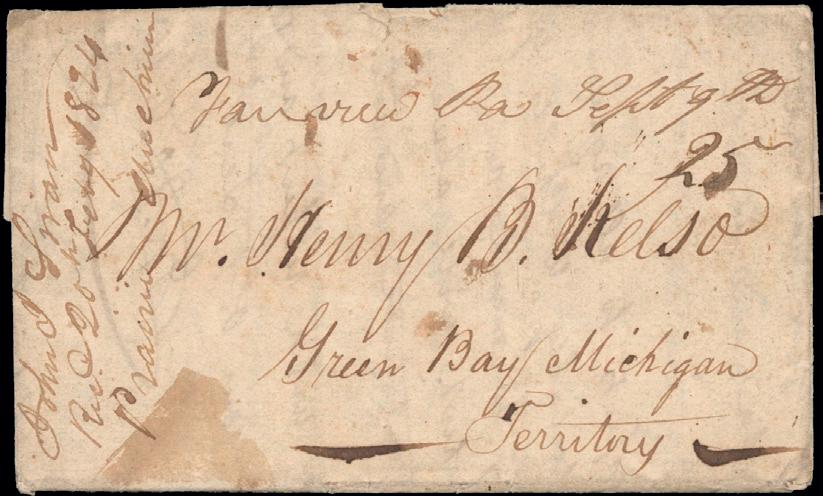 Fanview Pa Sept 9th
25
Mr. Henry B. Kelso
Green Bay Michigan
Territory
John Swan
Recd 20th 1824
Prairie